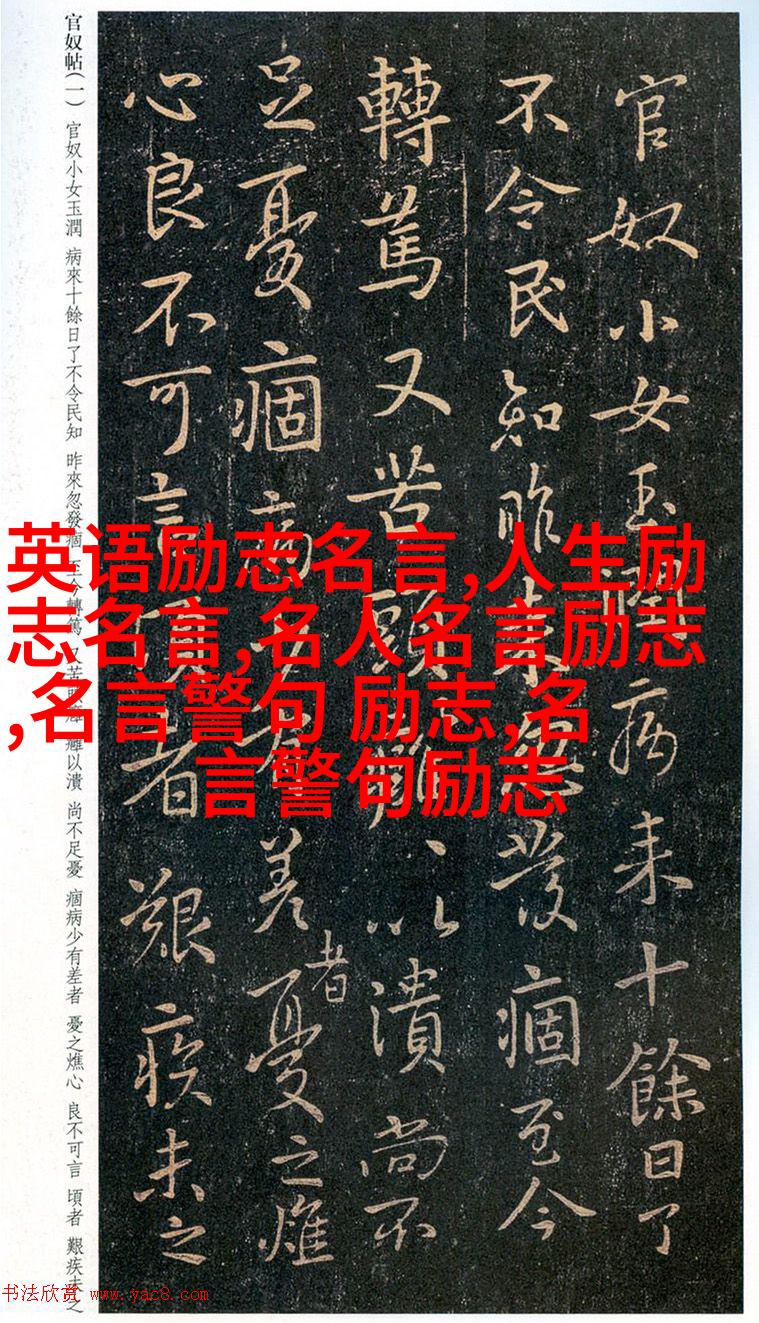 官奴小女玉潤病来十餘日了
不令民知昨来忽發痼至今
轉篤又苦頭癰、以潰尚不
足憂痼病少有差者憂之燋
心良不可言頃者艱疾未之
官奴帖(一) 官奴小女玉潤 病來十餘日了不令民知 昨來忽發痼 至今轉篤 又苦頭癰 癰以潰 尚不足憂 痼病少有差者 憂之燋心 良不可言 頃者 艱疾未之
英语励志名言,人生励
志名言,名人名言励志
,名言警句 励志,名
言警句励志
书法欣赏 www.yac8.com